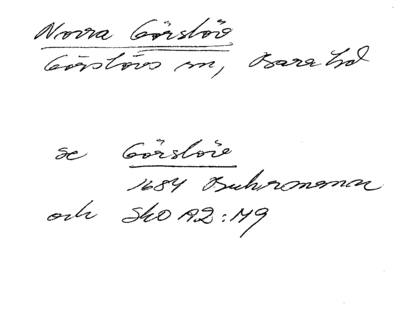 Norra Görslöv
Görslövs sn, Bara hd
se Görslöv
1684 Buhrmann
och SkO A2:149